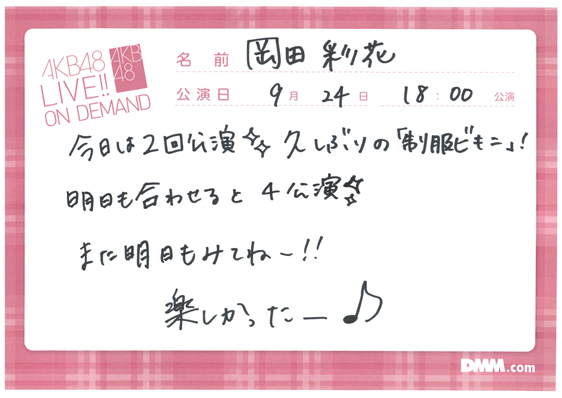 AKB48
LIVE!!
ON DEMAND
AKB
48
名前 岡田彩花
公演日 9月24日 18:00 公演
今日は2回公演 久しぶりの「制服ビもニ」!
明日も合わせると4公演
また明日もみてねー!!
楽しかったー♪
DMM.com